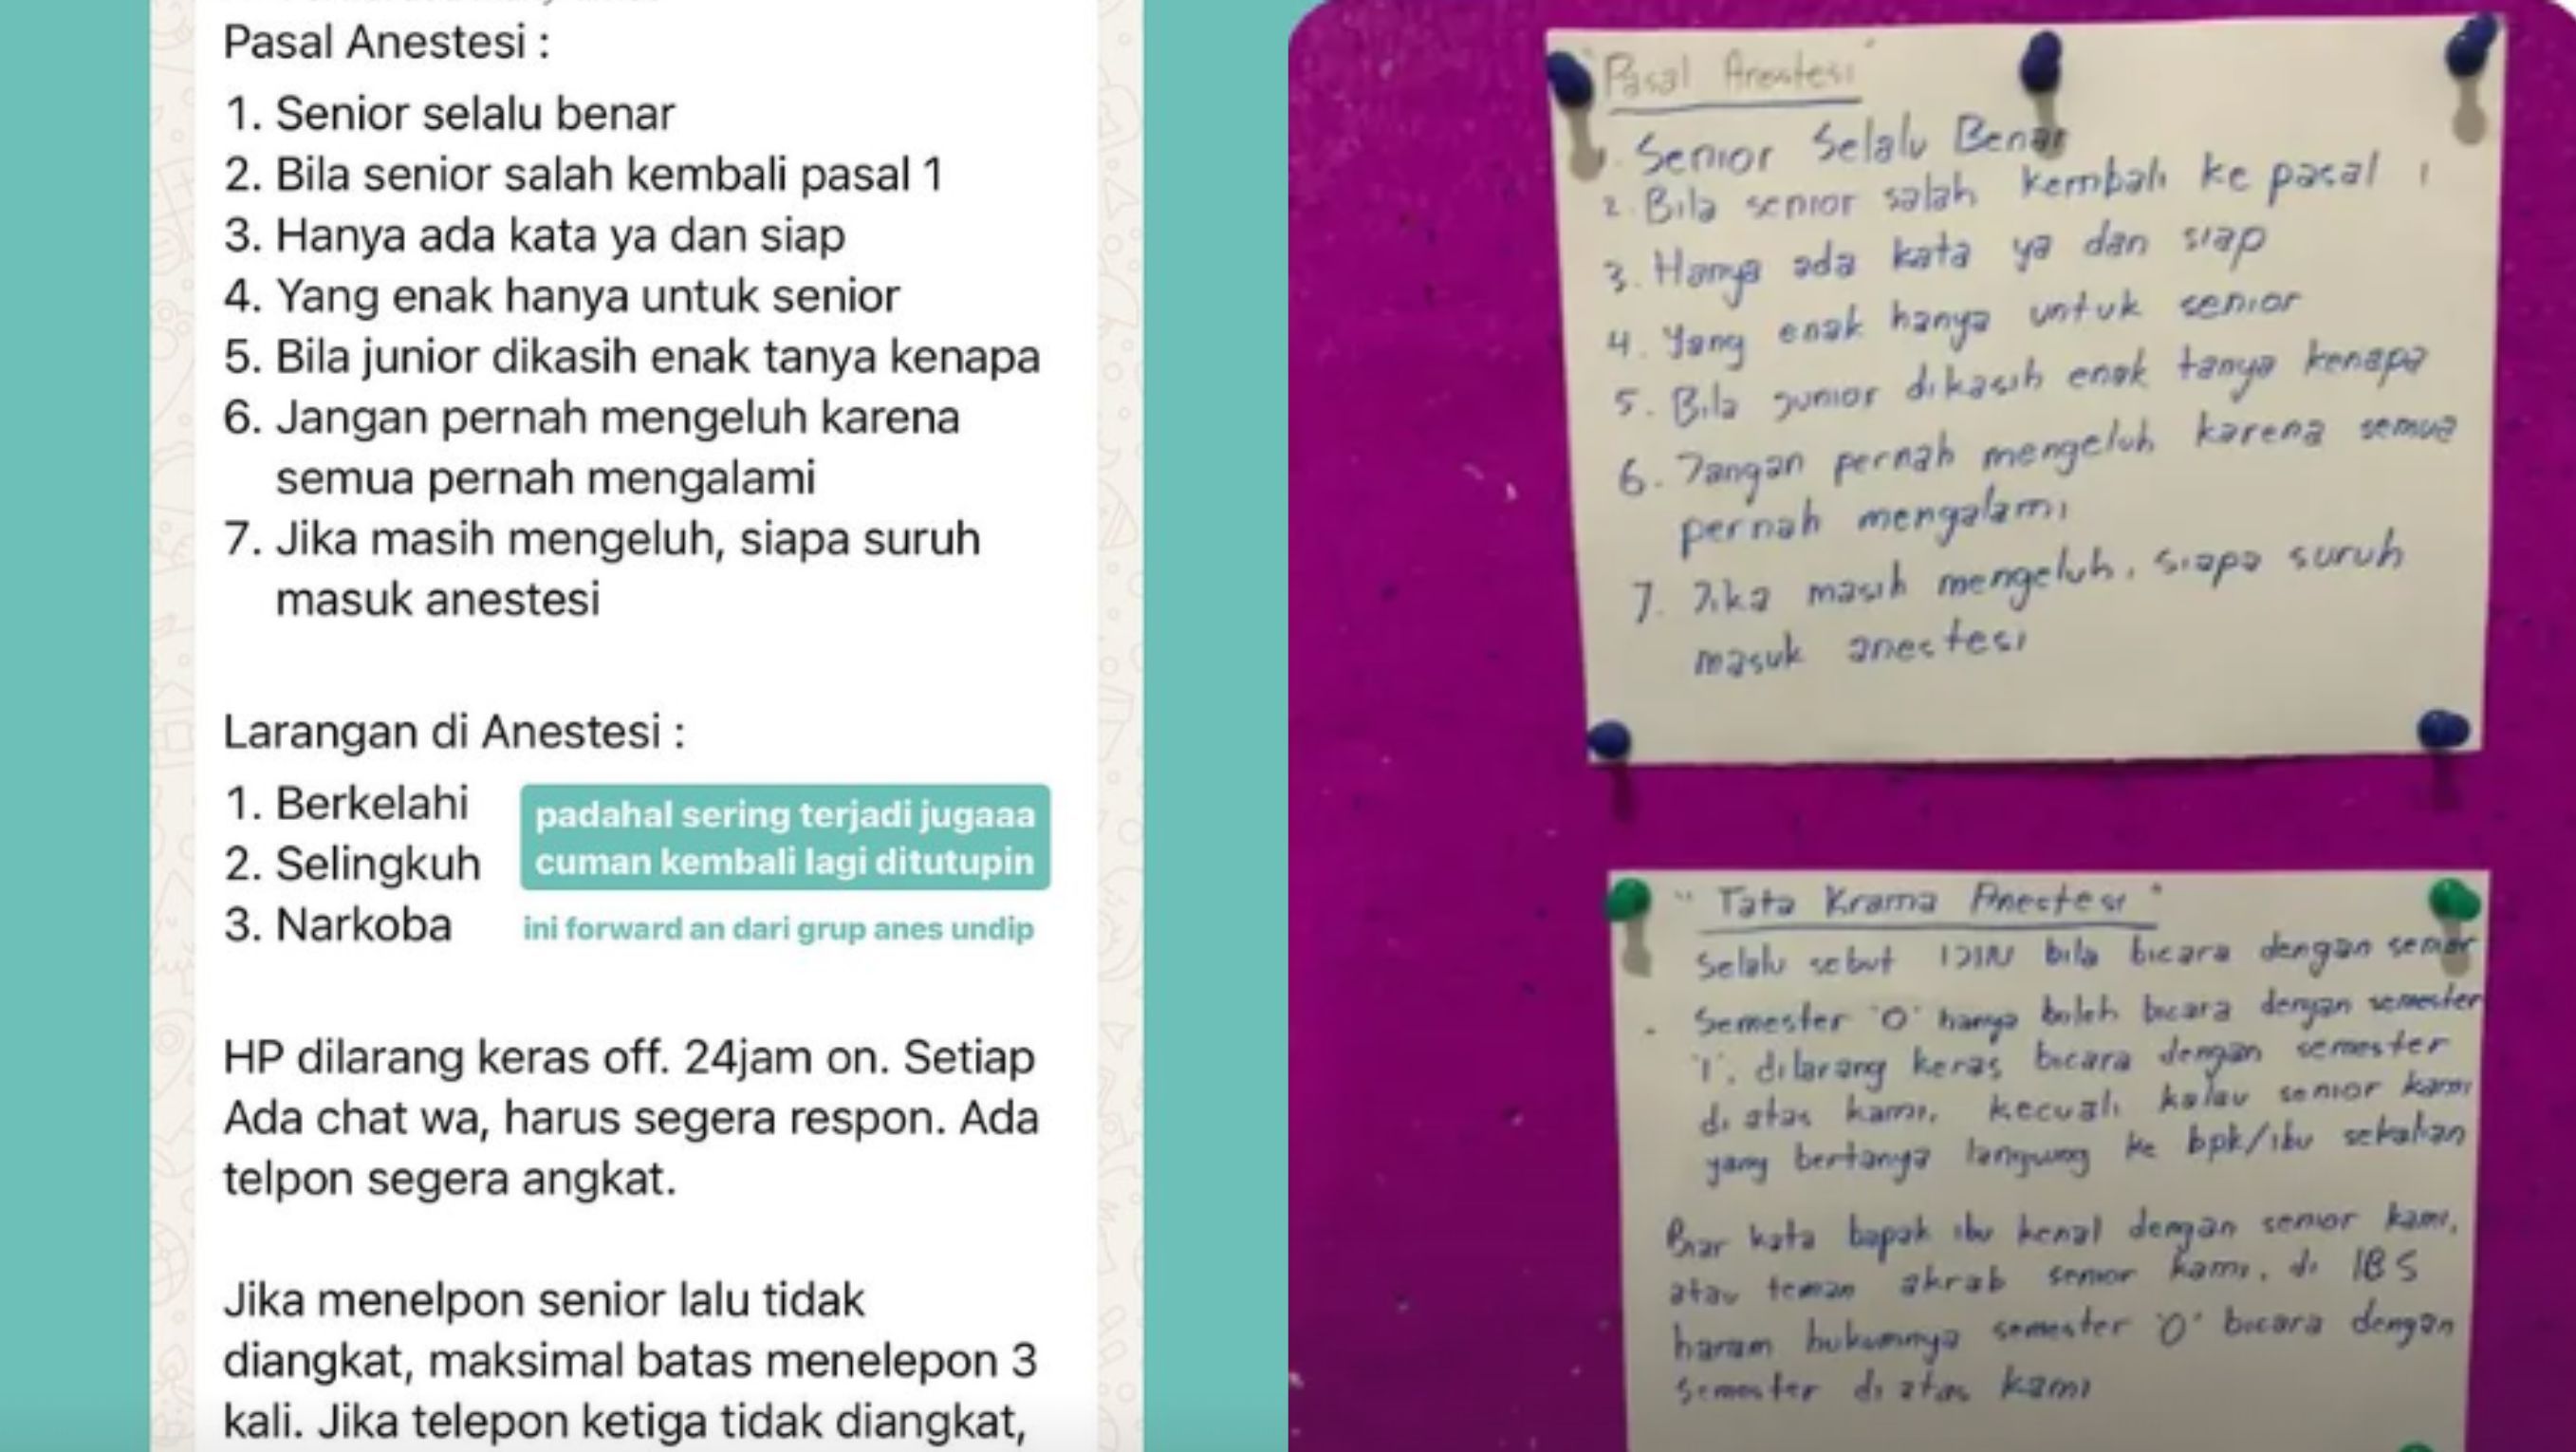 Pasal Anestesi :
1. Senior selalu benar
2. Bila senior salah kembali pasal 1
3. Hanya ada kata ya dan siap
4. Yang enak hanya untuk senior
5. Bila junior dikasih enak tanya kenapa
6. Jangan pernah mengeluh karena
semua pernah mengalami
7. Jika masih mengeluh, siapa suruh
masuk anestesi
Larangan di Anestesi :
1. Berkelahi
2. Selingkuh
3. Narkoba
padahal sering terjadi jugaaa
cuman kembali lagi ditutupin
ini forward an dari grup anes undip
HP dilarang keras off. 24jam on. Setiap
Ada chat wa, harus segera respon. Ada
telpon segera angkat.
Jika menelpon senior lalu tidak
diangkat, maksimal batas menelepon 3
kali. Jika telepon ketiga tidak diangkat,
"Pasal Anestesi"
1. Senior Selalu Benar
2. Bila senior salah kembali ke pasal 1
3. Hanya ada kata ya dan siap
4. Yang enak hanya untuk senior
5. Bila junior dikasih enak tanya kenapa
6. Jangan pernah mengeluh karena semua
pernah mengalami
7. Jika masih mengeluh, siapa suruh
masuk anestesi
"Tata Krama Anestesi"
Selalu sebut IZIN bila bicara dengan senior
Semester '0' hanya boleh bicara dengan semester
'1', dilarang keras bicara dengan semester
di atas kami, kecuali kalau senior kami
yang bertanya langsung ke bpk/ibu sekalian
Biar kata bapak ibu kenal dengan senior kami,
atau teman akrab senior kami, di IBS
haram hukumnya semester '0' bicara dengan
semester di atas kami